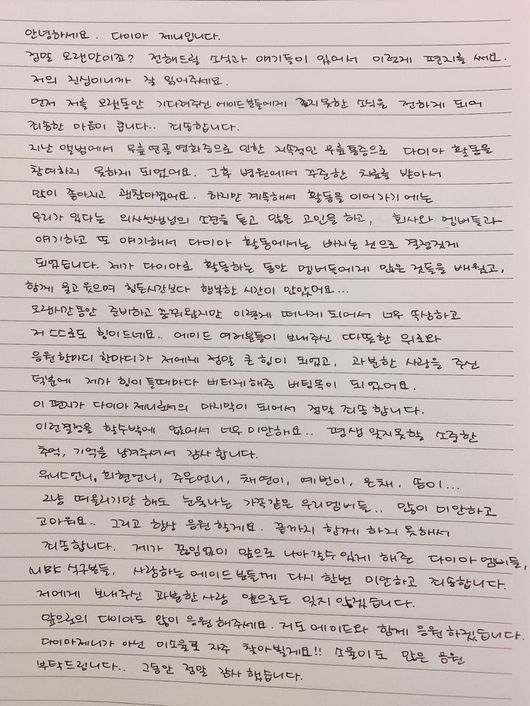 안녕하세요. 다이아 제니입니다.
정말 오랜만이죠? 전해드릴 소식과 얘기들이 있어서 이렇게 편지를 써요.
저의 진심이니까 잘 읽어주세요.
먼저 저를 오랫동안 기다려주신 에이드분들에게 좋지못한 소식을 전하게 되어
죄송한 마음이 큽니다.. 죄송합니다.
지난 앨범에서 무릎 연골 연화증으로 인한 지속적인 무릎통증으로 다이아 활동을
참여하지 못하게 되었어요. 그후 병원에서 꾸준한 치료를 받아서
많이 좋아지고 괜찮아졌어요. 하지만 계속해서 활동을 이어가기에는
무리가 있다는 의사선생님의 소견을 듣고 많은 고민을 하고, 회사와 멤버들과
얘기하고 또 얘기해서 다이아 활동에서는 빠지는 걸로 결정짓게
되었습니다. 제가 다이아로 활동하는 동안 멤버들에게 많은 것들을 배웠고,
함께 울고 웃으며 힘든시간보다 행복한 시간이 많았어요...
오랜시간동안 준비하고 꿈꿔왔지만 이렇게 떠나게 되어서 너무 속상하고
저 스스로도 힘이드네요.. 에이드 여러분들이 보내주신 따뜻한 위로와
응원한마디 한마디가 저에게 정말 큰 힘이 되었고, 과분한 사랑을 주신
덕분에 제가 힘이 들때마다 버티게해준 버팀목이 되었어요.
이 편지가 다이아 제니로서의 마지막이 되어서 정말 죄송합니다.
이런결정을 할수밖에 없어서 너무 미안해요.. 평생 잊지못할 소중한
추억, 기억을 남겨주셔서 감사합니다.
유니스언니, 희현언니, 주은언니, 채연이, 예빈이, 은채, 솜이...
그냥 떠올리기만 해도 눈물나는 가족같은 우리멤버들.. 많이 미안하고
고마워요.. 그리고 항상 응원 할게요. 끝까지 함께 하지 못해서
죄송합니다. 제가 끊임없이 앞으로 나아갈수 있게 해준 다이아 멤버들,
MBK 식구분들, 사랑하는 에이드 분들께 다시 한번 미안하고 죄송합니다.
저에게 보내주신 과분한 사랑 앞으로도 잊지 않겠습니다.
앞으로의 다이아도 많이 응원해주세요. 저도 에이드와 함께 응원하겠습니다.
다이아제니가 아닌 이소율로 자주 찾아뵐게요!! 소율이도 많은 응원
부탁드립니다.. 그동안 정말 감사했습니다.